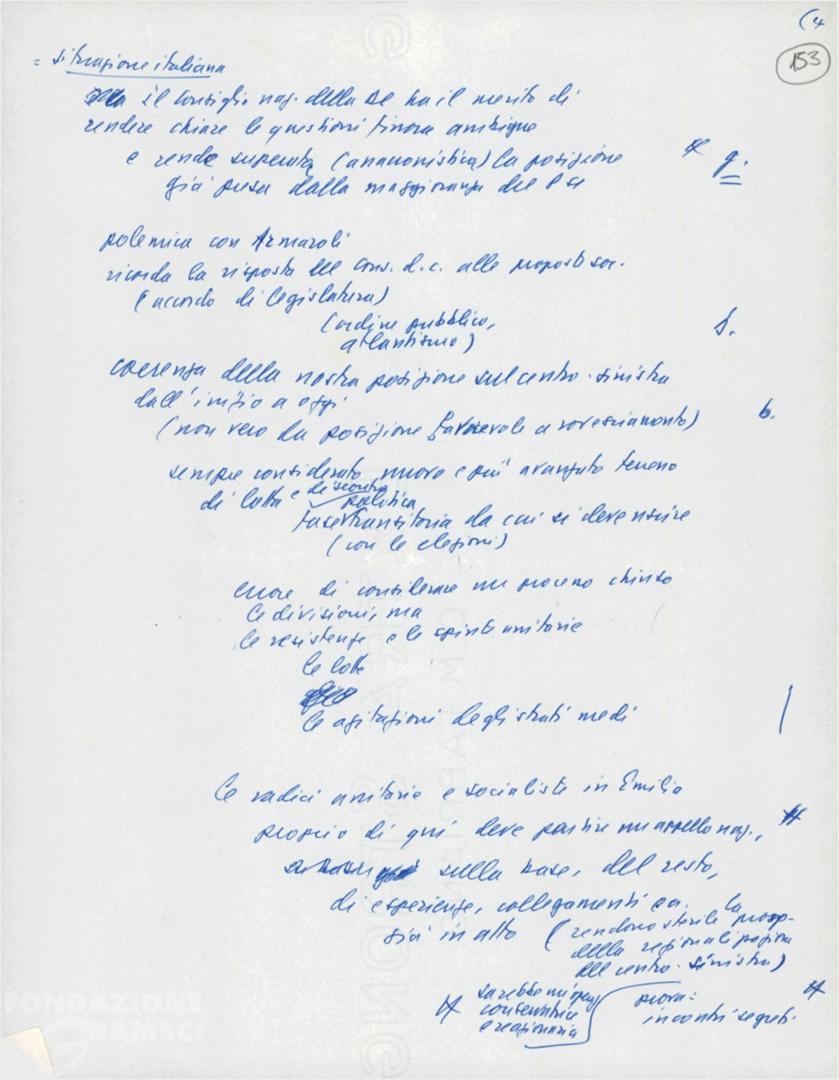 (4
153
= situazione italiana
il Consiglio naz. della DC ha il merito di
rendere chiare le questioni finora ambigue
e rende superata (anacronistica) la posizione
già presa dalla maggioranza del PSI
g.
polemica con Armaroli
ricorda la risposta del Cons. d.c. alle proposte soc.
(accordo di legislatura)
(ordine pubblico,
atlantismo)
s.
coerenza della nostra posizione sul centro-sinistra
dall'inizio a oggi
(non vero da posizione favorevole a rovesciamento)
b.
sempre considerato nuovo e più avanzato terreno
di lotta e di scontro
politica
fase transitoria da cui si deve uscire
(con le elezioni)
errore di considerare un processo chiuso
le divisioni, ma
le resistenze e le spinte unitarie
le lotte
le agitazioni degli strati medi
le radici unitarie e socialiste in Emilia
proprio di qui deve partire un appello naz.,
sulla base, del resto,
di esperienze, collegamenti ecc.
già in atto (rendono sterile la prosp.
della regionalizzazione
del centro-sinistra)
sarebbe un'
conservatrice
e reazionaria
prova:
incontri segreti.
FONDAZIONE
GRAMSCI